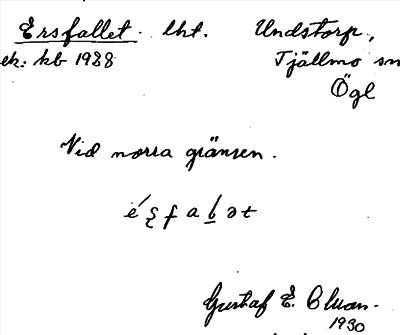 Ersfallet. lht. Undstorp,
ek: kb 1988 Tjällmo sn
Ögl
Vid norra gränsen.
Gustaf E. Cluan.
1930